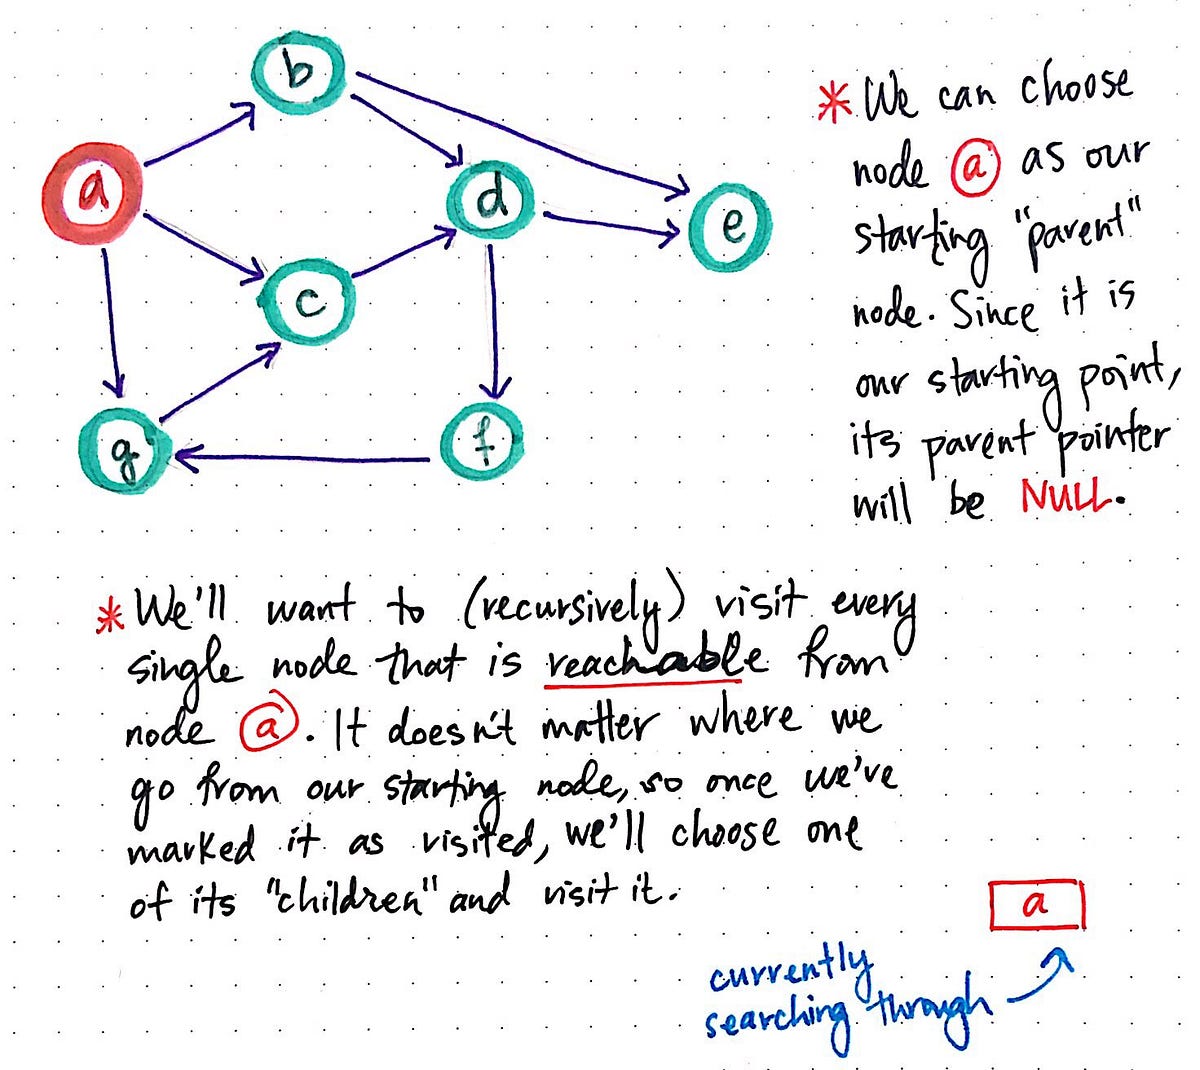 b
a
d
e
c
g
f
* We can choose
node a as our
starting "parent"
node. Since it is
our starting point,
its parent pointer
will be NULL.
* We'll want to (recursively) visit every
single node that is reachable from
node a. It doesn't matter where we
go from our starting node, so once we've
marked it as visited, we'll choose one
of its "children" and visit it.
a
currently
searching through